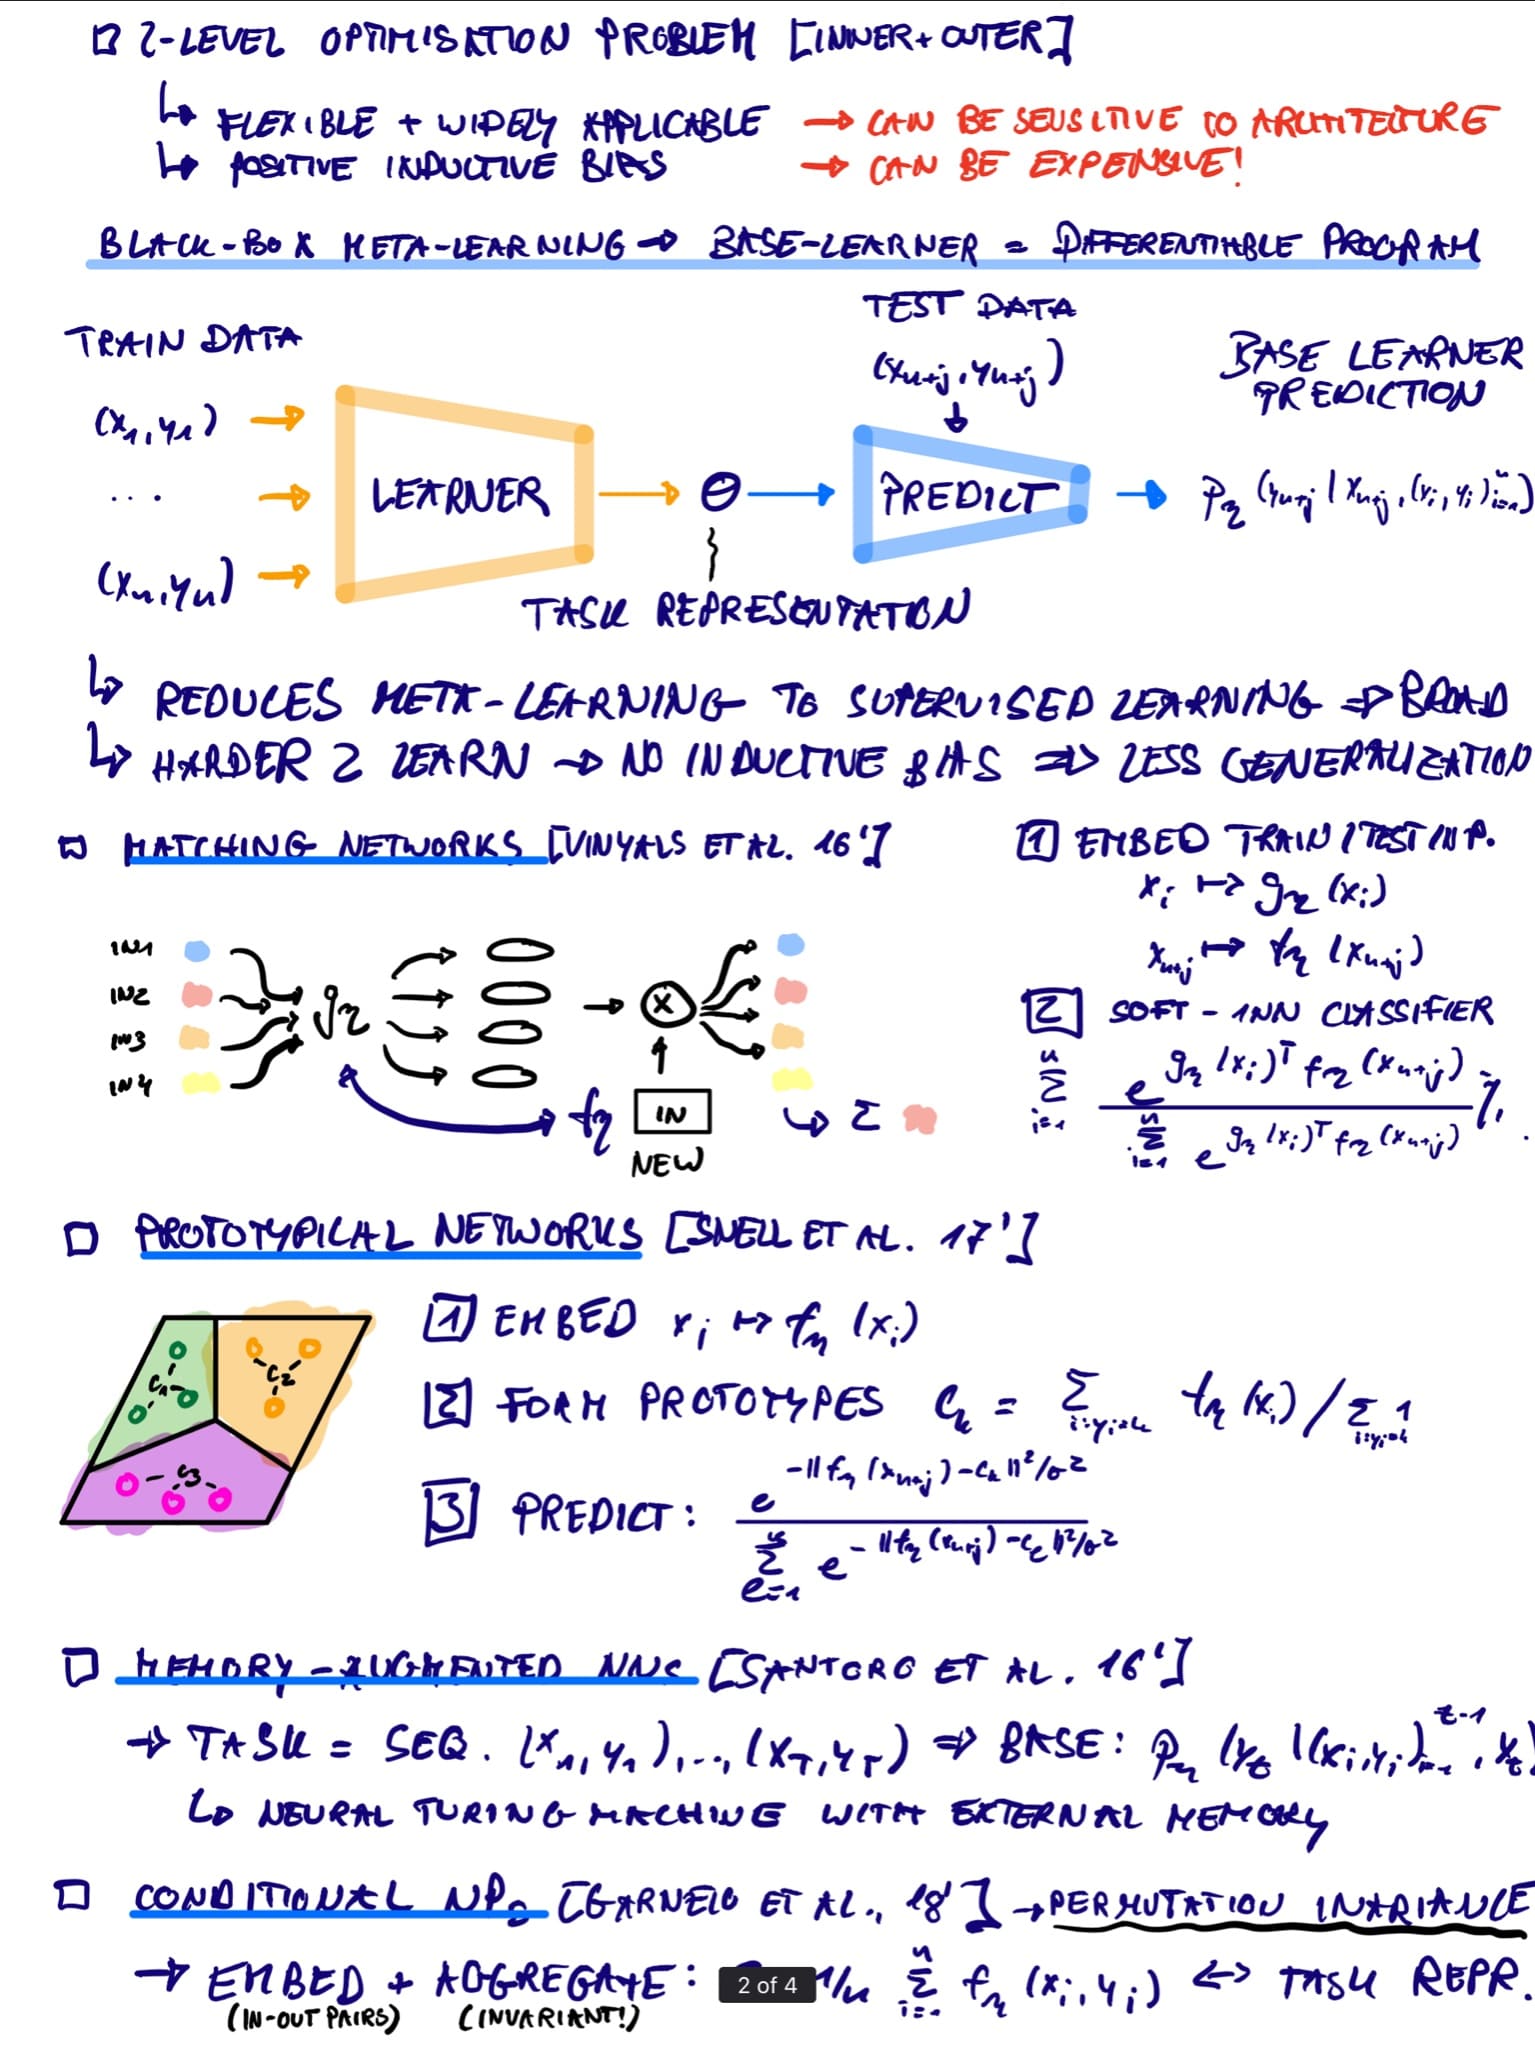 □ 2-LEVEL OPTIMISATION PROBLEM [INNER+OUTER]
↳ FLEXIBLE + WIDELY APPLICABLE → CAN BE SENSITIVE TO ARCHITECTURE
↳ POSITIVE INDUCTIVE BIAS → CAN BE EXPENSIVE!
BLACK-BOX META-LEARNING → BASE-LEARNER = DIFFERENTIABLE PROGRAM
TRAIN DATA
(x₁,y₁) →
... →
(xₙ,yₙ) →
LEARNER → θ → PREDICT →
TASK REPRESENTATION
TEST DATA
(xₙ₊ⱼ, yₙ₊ⱼ)
BASE LEARNER
PREDICTION
p_η (yₙ₊ⱼ | xₙ₊ⱼ, (xᵢ, yᵢ)ⁿᵢ₌₁)
↳ REDUCES META-LEARNING TO SUPERVISED LEARNING ⇒ BROAD
↳ HARDER 2 LEARN → NO INDUCTIVE BIAS ⇒ LESS GENERALIZATION
□ MATCHING NETWORKS [VINYALS ET AL. 16']
IN1
IN2
IN3
IN4
g_η
→ ⊗
f_η
IN
NEW
↳ Σ
1 EMBED TRAIN/TEST INP.
xᵢ ↦ g_η (xᵢ)
xₙ₊ⱼ ↦ f_η (xₙ₊ⱼ)
2 SOFT-1NN CLASSIFIER
Σⁿᵢ₌₁ e^{g_η(xᵢ)ᵀ f_η(xₙ₊ⱼ)} / Σⁿᵢ₌₁ e^{g_η(xᵢ)ᵀ f_η(xₙ₊ⱼ)} yᵢ
□ PROTOTYPICAL NETWORKS [SNELL ET AL. 17']
C₁
C₂
C₃
1 EMBED xᵢ ↦ f_η (xᵢ)
2 FORM PROTOTYPES C_k = Σ_{i:yᵢ=k} f_η (xᵢ) / Σ_{i:yᵢ=k} 1
3 PREDICT: e^{-||f_η(xₙ₊ⱼ)-c_k||²/σ²} / Σ_{e=1} e^{-||f_η(xₙ₊ⱼ)-c_e||²/σ²}
□ MEMORY-AUGMENTED NNS [SANTORO ET AL. 16']
→ TASK = SEQ. (x₁,y₁),..,(x_T,y_T) ⇒ BASE: p_η (y_t |(xᵢ,yᵢ)ᵗ⁻¹ᵢ₌₁, x_t)
↳ NEURAL TURING MACHINE WITH EXTERNAL MEMORY
□ CONDITIONAL NPs [GARNELO ET AL., 18'] → PERMUTATION INVARIANCE
→ EMBED + AGGREGATE: 1/n Σⁿᵢ₌₁ f_η (xᵢ, yᵢ) ↔ TASK REPR.
(IN-OUT PAIRS) (INVARIANT!)
2 of 4